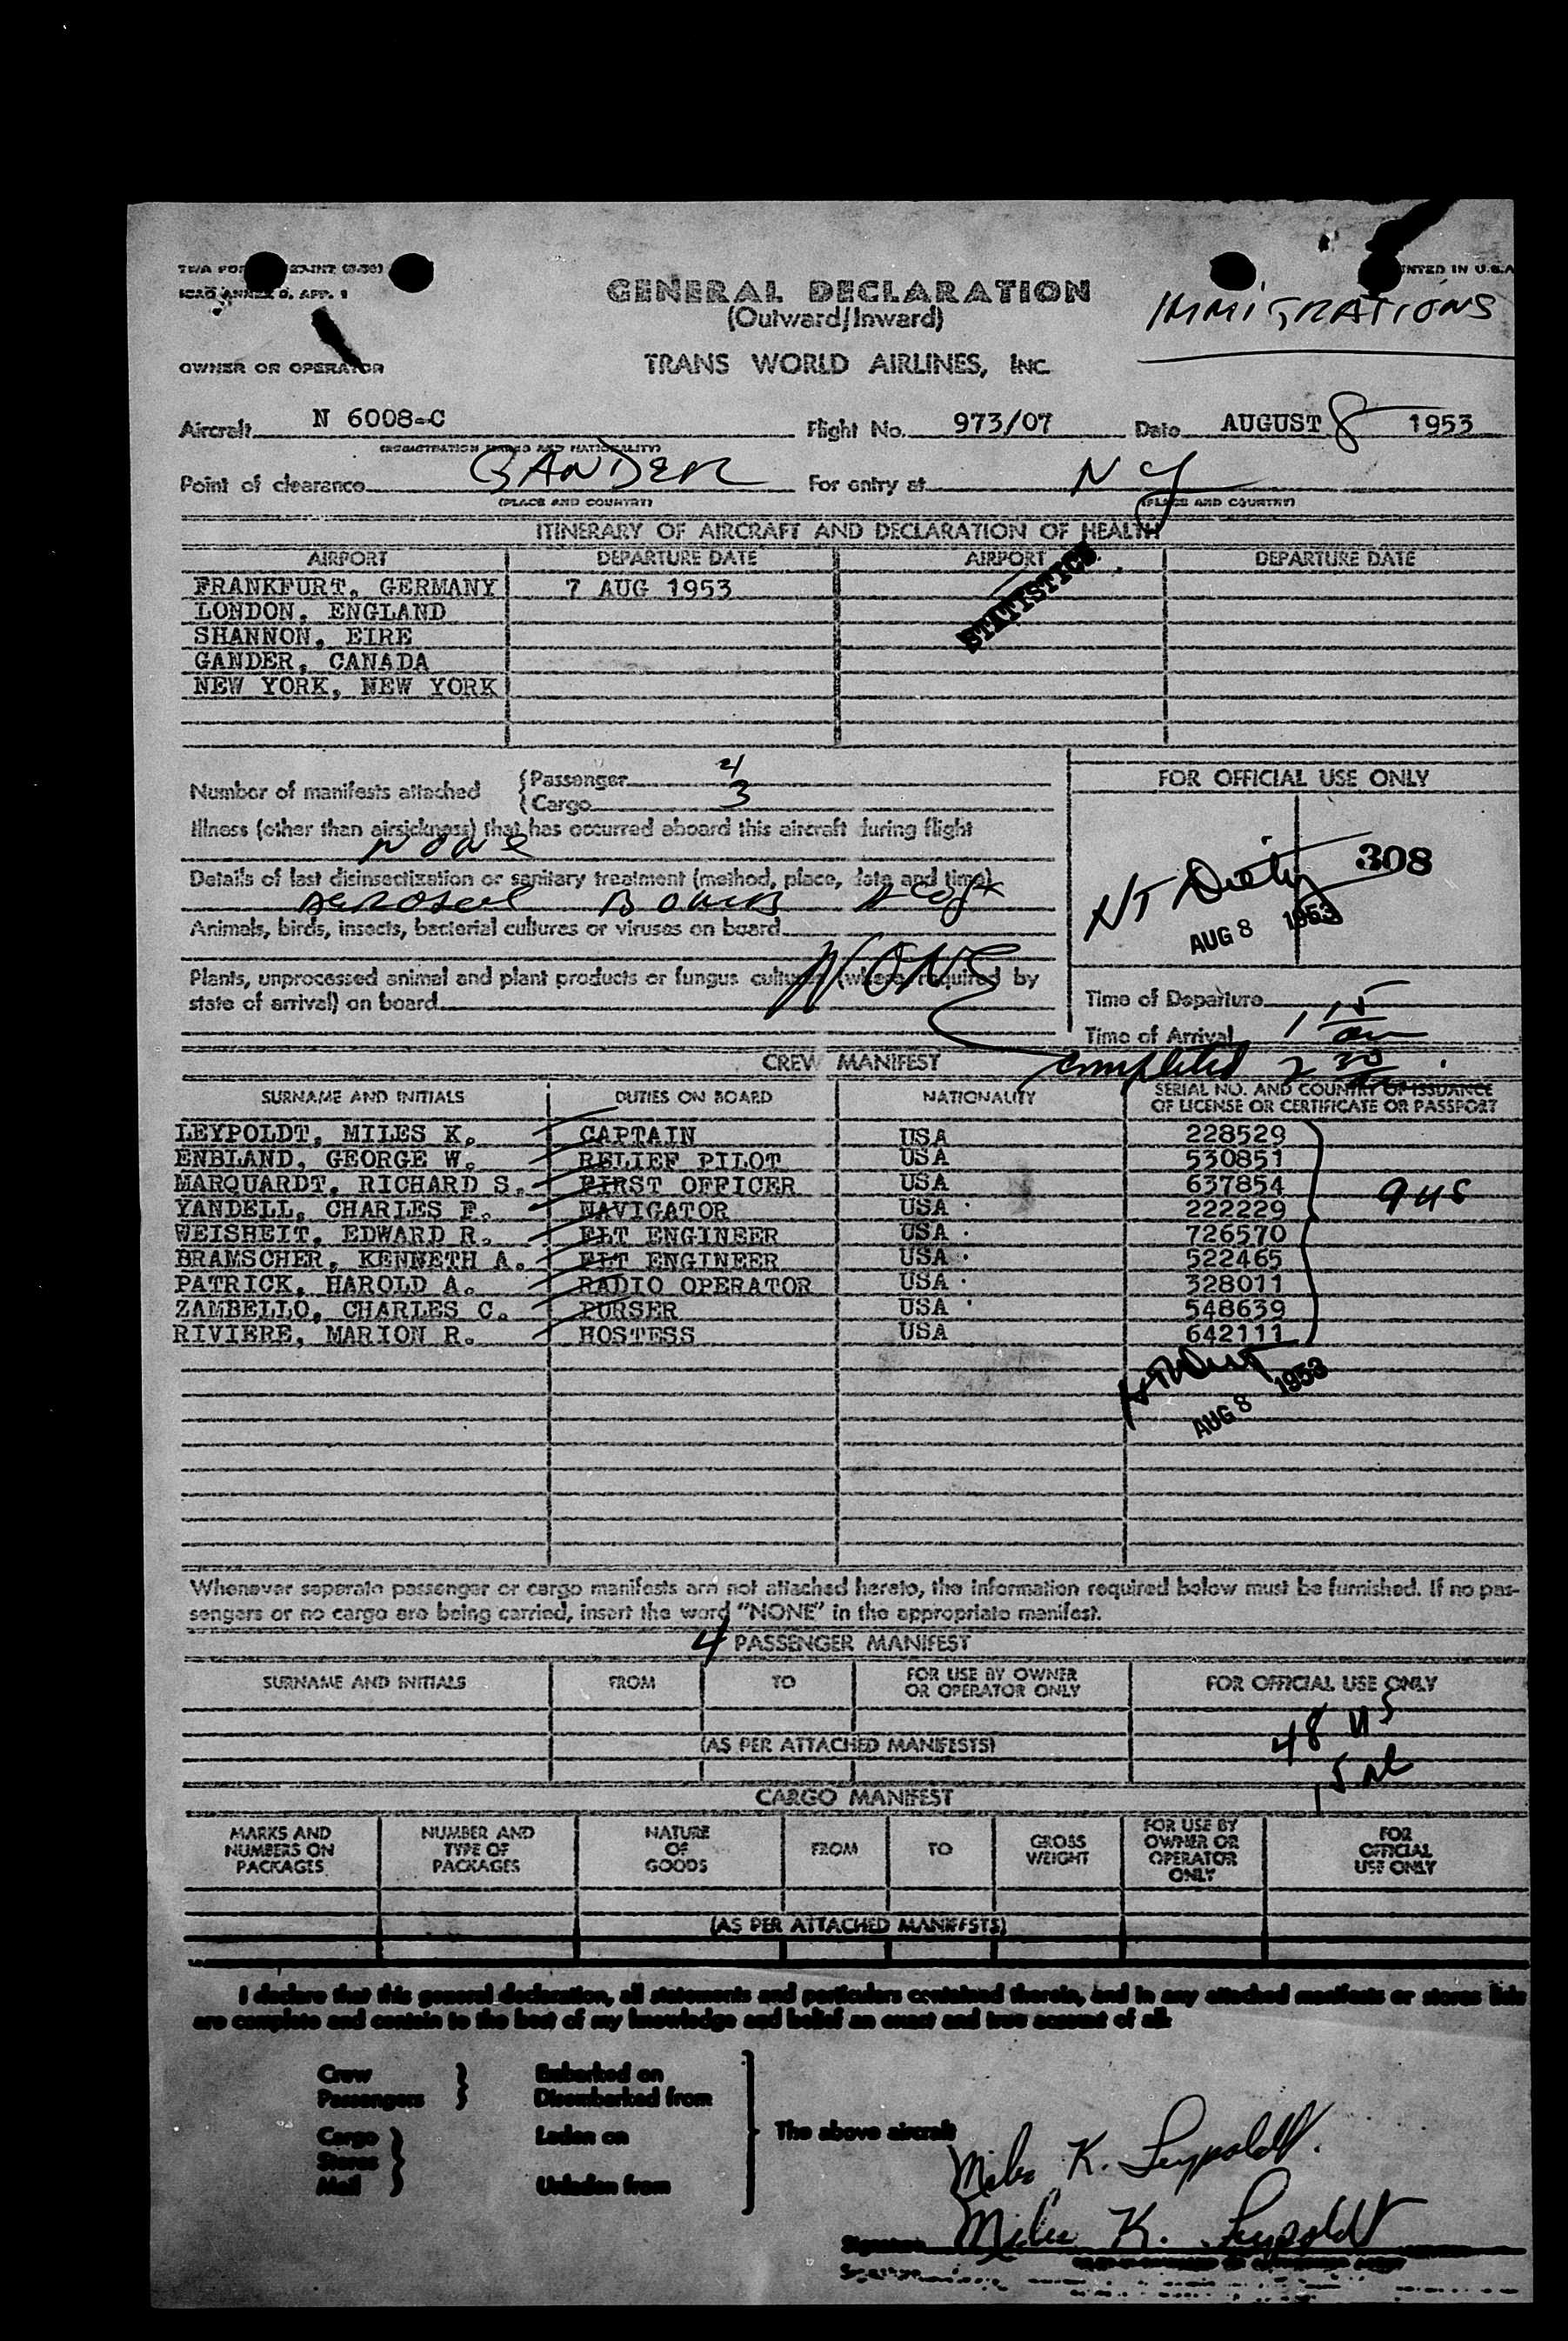 ICAO ANNEX 9, APP. 1
PRINTED IN U.S.A
GENERAL DECLARATION
(Outward/Inward)
IMMIGRATIONS
OWNER OR OPERATOR
TRANS WORLD AIRLINES, INC.
Aircraft N 6008-C Flight No. 973/07 Date AUGUST 8 1953
(REGISTRATION MARKS AND NATIONALITY)
Point of clearance GANDER For entry at N Y
(PLACE AND COUNTRY) (PLACE AND COUNTRY)
ITINERARY OF AIRCRAFT AND DECLARATION OF HEALTH
AIRPORT DEPARTURE DATE AIRPORT DEPARTURE DATE
FRANKFURT, GERMANY 7 AUG 1953
STATISTICS
LONDON, ENGLAND
SHANNON, EIRE
GANDER, CANADA
NEW YORK, NEW YORK
Number of manifests attached { Passenger 4
{ Cargo 3
FOR OFFICIAL USE ONLY
Illness (other than airsickness) that has occurred aboard this aircraft during flight
None
308
Details of last disinsectization or sanitary treatment (method, place, date and time)
Aerosol Bomb
AUG 8 1953
Animals, birds, insects, bacterial cultures or viruses on board
Plants, unprocessed animal and plant products or fungus cultures (where required by
state of arrival) on board NONE
Time of Departure
Time of Arrival 1 15 am
completed 2 30
CREW MANIFEST
SURNAME AND INITIALS DUTIES ON BOARD NATIONALITY SERIAL NO. AND COUNTRY OF ISSUANCE
OF LICENSE OR CERTIFICATE OR PASSPORT
LEYPOLDT, MILES K. CAPTAIN USA 228529
ENBLAND, GEORGE W. RELIEF PILOT USA 530851
MARQUARDT, RICHARD S. FIRST OFFICER USA 637854
YANDELL, CHARLES F. NAVIGATOR USA 222229
9 US
WEISHEIT, EDWARD R. FLT ENGINEER USA 726570
BRAMSCHER, KENNETH A. FLT ENGINEER USA 522465
PATRICK, HAROLD A. RADIO OPERATOR USA 328011
ZAMBELLO, CHARLES C. PURSER USA 548639
RIVIERE, MARION R. HOSTESS USA 642111
AUG 8 1953
Whenever separate passenger or cargo manifests are not attached hereto, the information required below must be furnished. If no pas-
sengers or no cargo are being carried, insert the word "NONE" in the appropriate manifest.
4 PASSENGER MANIFEST
SURNAME AND INITIALS FROM TO FOR USE BY OWNER
OR OPERATOR ONLY FOR OFFICIAL USE ONLY
48 US
(AS PER ATTACHED MANIFESTS)
CARGO MANIFEST
MARKS AND
NUMBERS ON
PACKAGES NUMBER AND
TYPE OF
PACKAGES NATURE
OF
GOODS FROM TO GROSS
WEIGHT FOR USE BY
OWNER OR
OPERATOR
ONLY FOR
OFFICIAL
USE ONLY
(AS PER ATTACHED MANIFESTS)
I declare that this general declaration, all statements and particulars contained therein, and in any attached manifests or stores lists
are complete and contain to the best of my knowledge and belief an exact and true account of all:
Crew } Embarked on
Passengers } Disembarked from
Cargo } Laden on
The above aircraft
Stores
Mail } Unladen from
Miles K. Leypoldt.
Signature Miles K. Leypoldt
Signature